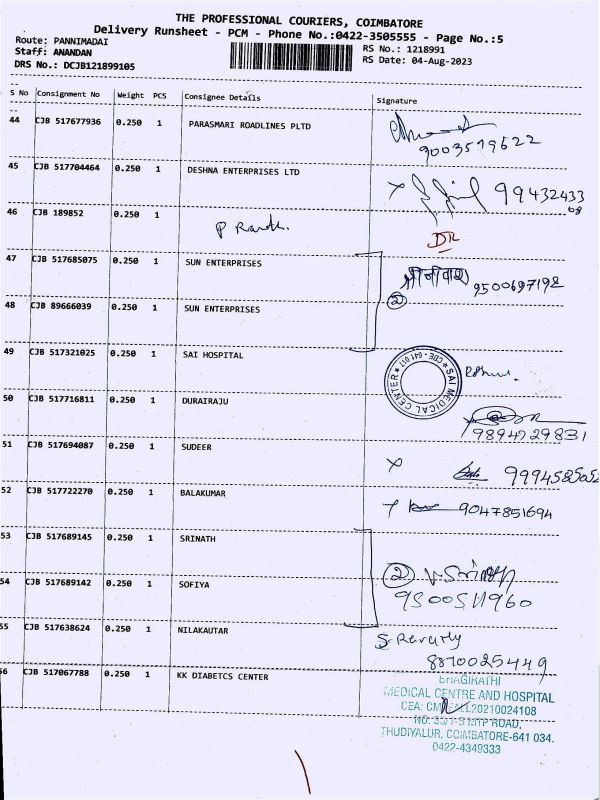 THE PROFESSIONAL COURIERS, COIMBATORE
Delivery Runsheet - PCM - Phone No.:0422-3505555 - Page No.:5
Route: PANNIMADAI
Staff: ANANDAN
DRS No.: DCJB121899105
RS No.: 1218991
RS Date: 04-Aug-2023
S No Consignment No Weight PCS Consignee Details Signature
44 CJB 517677936 0.250 1 PARASMARI ROADLINES PLTD
9003579622
45 CJB 517704464 0.250 1 DESHNA ENTERPRISES LTD
99432433
68
46 CJB 189852 0.250 1
DR
47 CJB 517685075 0.250 1 SUN ENTERPRISES
श्रीनिवास 9500697192
48 CJB 89666039 0.250 1 SUN ENTERPRISES
2
49 CJB 517321025 0.250 1 SAI HOSPITAL
SAI MEDICAL CENTER ★ CBE - 641 017 ★
50 CJB 517716811 0.250 1 DURAIRAJU
9894729831
51 CJB 517694087 0.250 1 SUDEER
X 9994585052
52 CJB 517722270 0.250 1 BALAKUMAR
9047851694
53 CJB 517689145 0.250 1 SRINATH
2 V.Srinath
54 CJB 517689142 0.250 1 SOFIYA
9500511960
55 CJB 517638624 0.250 1 NILAKAUTAR
S Reverly
8870025449
56 CJB 517067788 0.250 1 KK DIABETCS CENTER
BHAGIRATHI
MEDICAL CENTRE AND HOSPITAL
THUDIYALUR, COIMBATORE-641 034.
0422-4349333